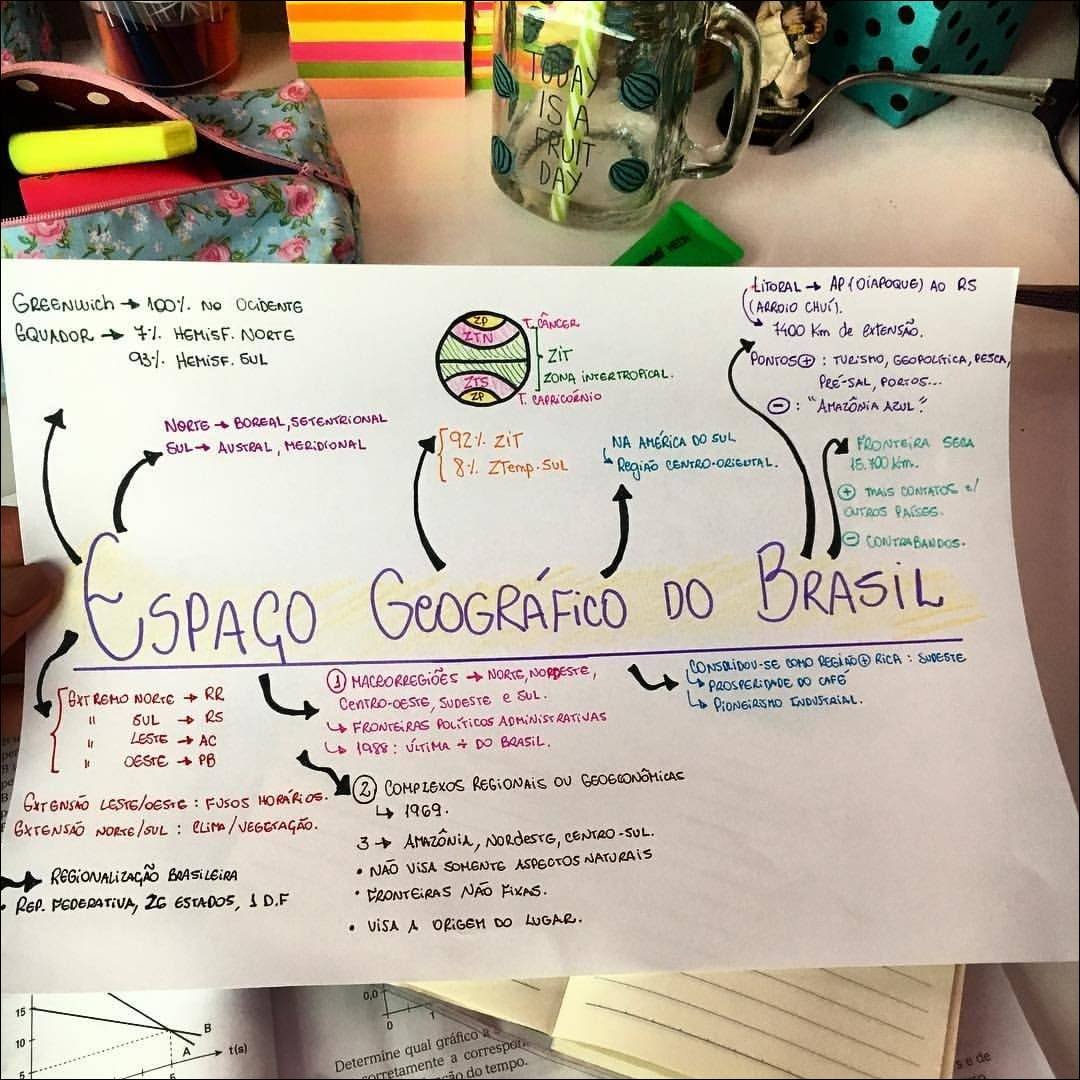 TODAY
IS A
FRUIT
DAY
GREENWICH → 100% NO OCIDENTE
EQUADOR → 7% HEMISF. NORTE
93% HEMISF. SUL
NORTE → BOREAL, SETENTRIONAL
SUL → AUSTRAL, MERIDIONAL
ZP
ZTN
ZTS
ZP
T. CÂNCER
ZIT
ZONA INTERTROPICAL.
T. CAPRICÓRNIO
92% ZIT
8% ZTEMP. SUL
NA AMÉRICA DO SUL
↳ REGIÃO CENTRO-ORIENTAL.
LITORAL → AP (OIAPOQUE) AO RS
(ARROIO CHUÍ).
↳ 7400 Km DE EXTENSÃO.
PONTOS ⊕ : TURISMO, GEOPOLÍTICA, PESCA,
PRÉ-SAL, PORTOS...
⊖ : "AMAZÔNIA AZUL".
FRONTEIRA SECA
15.700 Km.
⊕ MAIS CONTATOS c/
OUTROS PAÍSES.
⊖ CONTRABANDOS.
ESPAÇO GEOGRÁFICO DO BRASIL
EXTREMO NORTE → RR
" SUL → RS
" LESTE → AC
" OESTE → PB
EXTENSÃO LESTE/OESTE : FUSOS HORÁRIOS.
EXTENSÃO NORTE/SUL : CLIMA/VEGETAÇÃO.
→ REGIONALIZAÇÃO BRASILEIRA
• REP. FEDERATIVA, 26 ESTADOS, 1 D.F
① MACRORREGIÕES → NORTE, NORDESTE,
CENTRO-OESTE, SUDESTE E SUL.
↳ FRONTEIRAS POLÍTICOS ADMINISTRATIVAS
↳ 1988 : ÚLTIMA ÷ DO BRASIL.
② COMPLEXOS REGIONAIS OU GEOECONÔMICAS
↳ 1969.
3 → AMAZÔNIA, NORDESTE, CENTRO-SUL.
• NÃO VISA SOMENTE ASPECTOS NATURAIS
• FRONTEIRAS NÃO FIXAS.
• VISA A ORIGEM DO LUGAR.
CONSOLIDOU-SE COMO REGIÃO ⊕ RICA : SUDESTE
↳ PROSPERIDADE DO CAFÉ
↳ PIONEIRISMO INDUSTRIAL.
15
10
5
B
A
t(s)
5
0,0
0
1
Determine qual gráfico
corretamente a
do tempo.
s e de